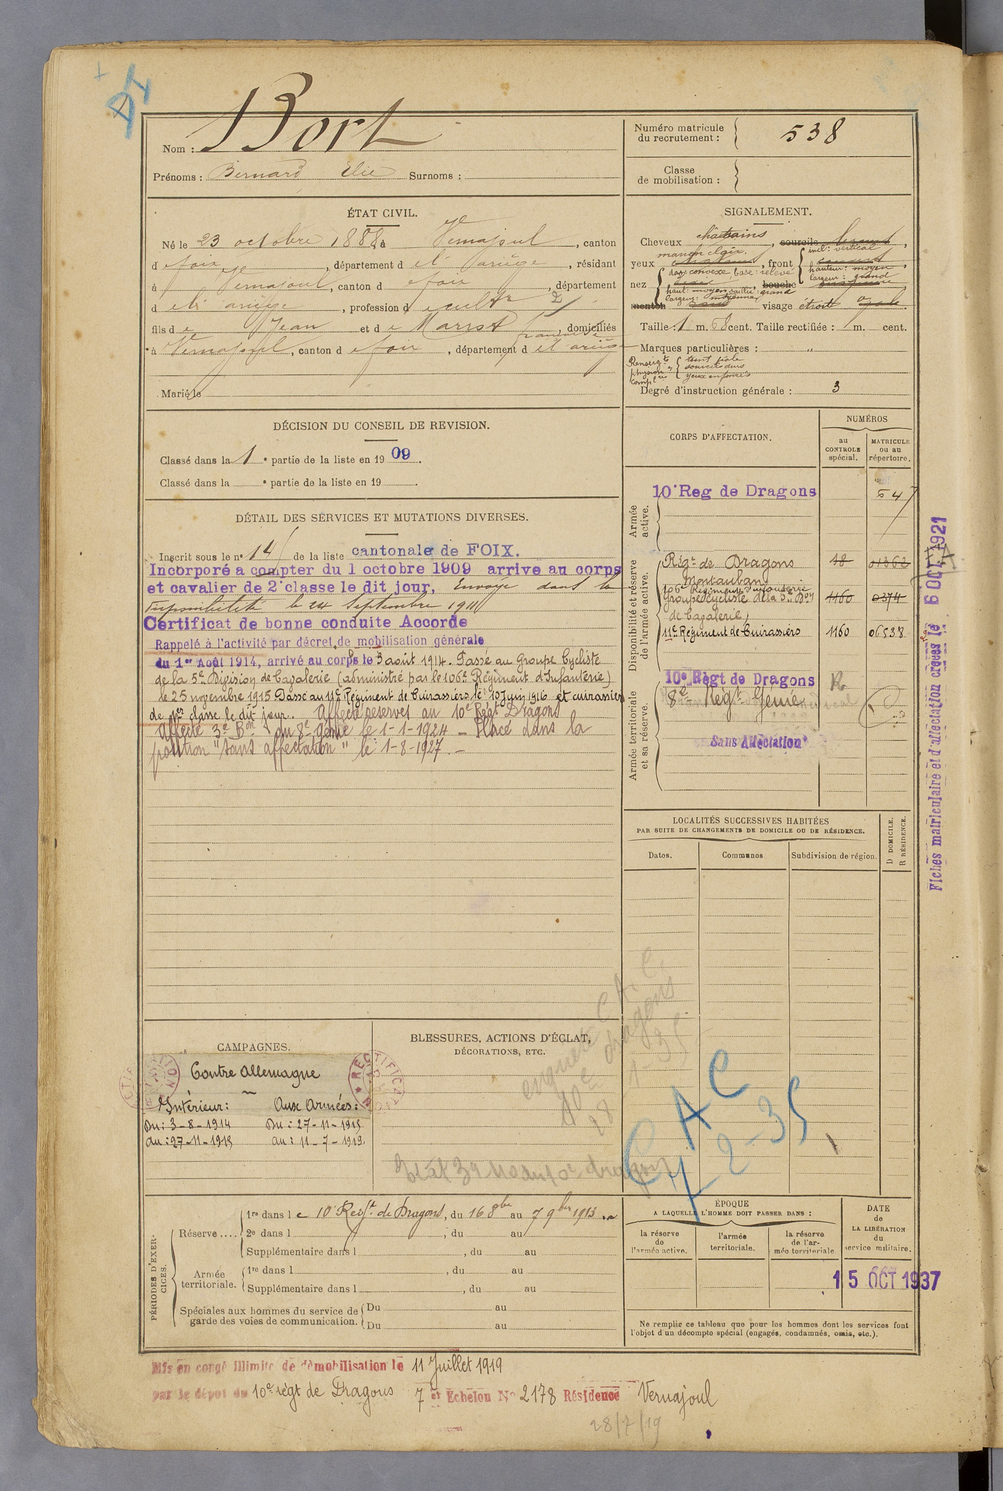 Nom : Bort
Prénoms : Bernard Elie Surnoms :
Numéro matricule du recrutement : 538
Classe de mobilisation :
ÉTAT CIVIL.
Né le 23 octobre 1888 à Vernajoul, canton
d e foix, département d e l'ariège, résidant
à Vernajoul, canton d e foix, département
d e l'ariège, profession d e cultr
fils d e Jean et d e , domiciliés
à Vernajoul, canton d e foix, département d e l'ariège
Marié le
SIGNALEMENT.
Cheveux chatains, sourcils
yeux marron clair, front incl: vertical
hauteur: moyen
largeur: grand
nez dos convexe base relevé
haut: moyen saillie: grand
largeur: moyenne
bouche
menton visage étroit
Taille 1 m. 68 cent. Taille rectifiée : m. cent.
Marques particulières : "
Renseigts physion. complre teint pâle
yeux enfoncés
Degré d'instruction générale : 3
DÉCISION DU CONSEIL DE REVISION.
Classé dans la 1e partie de la liste en 1909.
Classé dans la e partie de la liste en 19
DÉTAIL DES SERVICES ET MUTATIONS DIVERSES.
Inscrit sous le n° 14 de la liste cantonale de FOIX.
Incorporé a compter du 1 octobre 1909 arrive au corps
et cavalier de 2e classe le dit jour, Envoyé dans la
disponibilité le 24 Septembre 1911
Certificat de bonne conduite Accorde
Rappelé à l'activité par décret de mobilisation générale
du 1er Août 1914, arrivé au corps le 3 août 1914. Passé au Groupe Cycliste
de la 5e Division de Cavalerie (administré par le 106e Régiment d'Infanterie)
le 25 novembre 1915 Passé au 11e Régiment de Cuirassiers le 10 Juin 1916 et cuirassier
de 1ère classe le dit jour. Affecté réserves au 10e Régt Dragons
Affecté 3e Bon du 8e Génie le 1-1-1924 - Placé dans la
position "Sans affectation" le 1-8-1927. -
CORPS D'AFFECTATION.
NUMÉROS
au CONTROLE spécial.
MATRICULE ou au répertoire.
Armée active.
10e Reg de Dragons 547
Disponibilité et réserve de l'armée active.
Régt de Dragons 18
Montauban
106e Régiment d'infanterie
Groupe cycliste de la 5e Don 1160
de Cavalerie
11e Régiment de Cuirassiers 1160
Armée territoriale et sa réserve.
10e Régt de Dragons
8e Régt Génie
Sans Affectation
Fiches matriculaire et d'affectation créées le 6 OCT 1921
LOCALITÉS SUCCESSIVES HABITÉES
PAR SUITE DE CHANGEMENTS DE DOMICILE OU DE RÉSIDENCE.
Dates. Communes Subdivision de région. D DOMICILE. R RÉSIDENCE.
CAMPAGNES.
RECTIFICATION
Contre Allemagne
Intérieur: Aux Armées:
Du: 3-8-1914 Du: 27-11-1915
au: 27-11-1915 au: 11-7-1919.
BLESSURES, ACTIONS D'ÉCLAT,
DÉCORATIONS, ETC.
enquête C.A.C.
10e dragons
28 1 35
CAC
7-2-35
PÉRIODES D'EXERCICES.
Réserve....
1re dans l e 10e Regt. de Dragons, du 16 8bre au 7 9bre 1913
2e dans l , du au
Supplémentaire dans l , du au
Armée territoriale.
1re dans l , du au
Supplémentaire dans l , du au
Spéciales aux hommes du service de garde des voies de communication.
Du au
Du au
ÉPOQUE
A LAQUELLE L'HOMME DOIT PASSER DANS :
la réserve de l'armée active.
l'armée territoriale.
la réserve de l'armée territoriale.
DATE DE LA LIBÉRATION du service militaire.
15 OCT 1937
Ne remplir ce tableau que pour les hommes dont les services font
l'objet d'un décompte spécial (engagés, condamnés, omis, etc.).
Mis en congé illimité de démobilisation le 11 Juillet 1919
par le dépôt du 10e régt de Dragons 7e Echelon N° 2178 Résidence Vernajoul
28/7/19